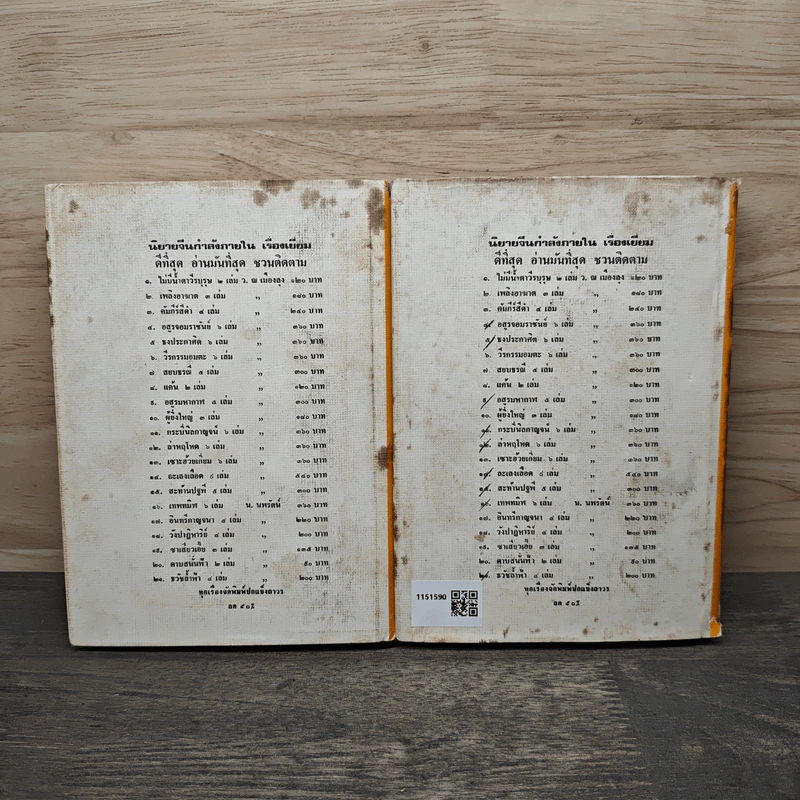 นิยายจีนกำลังภายใน เรื่องเยี่ยม
ดีที่สุด อ่านมันที่สุด ชวนติดตาม
๑. ไม่มีน้ำตาวีรบุรุษ ๒ เล่ม ว. ณ เมืองลุง ๑๒๐ บาท
๒. เพลิงอาฆาต ๓ เล่ม ,, ๑๘๐ บาท
๓. คัมภีร์สีดำ ๔ เล่ม ,, ๒๔๐ บาท
๔. อสูรจอมราชันย์ ๖ เล่ม ,, ๓๖๐ บาท
๕ ธงประกาศิต ๖ เล่ม ,, ๓๖๐ บาท
๖. วีรกรรมอมตะ ๖ เล่ม ,, ๓๖๐ บาท
๗ สยบธรณี ๕ เล่ม ,, ๓๐๐ บาท
๘. แค้น ๒ เล่ม ,, ๑๒๐ บาท
๙. อสูรมหากาฬ ๕ เล่ม ,, ๓๐๐ บาท
๑๐. ผู้ยิ่งใหญ่ ๓ เล่ม ,, ๑๘๐ บาท
๑๑. กระบี่นิลกาญจน์ ๖ เล่ม ,, ๓๖๐ บาท
๑๒. ล่าหฤโหด ๖ เล่ม ,, ๓๖๐ บาท
๑๓. เซาะฮ้วยเกี่ยม ๖ เล่ม ,, ๓๖๐ บาท
๑๔. ทะเลเลือด ๙ เล่ม ,, ๕๔๐ บาท
๑๕. สะท้านปฐพี ๕ เล่ม ,, ๓๐๐ บาท
๑๖. เทพทมิฬ ๖ เล่ม น. นพรัตน์ ๓๖๐ บาท
๑๗. อินทรีกาญจนา ๔ เล่ม ,, ๒๒๐ บาท
๑๘. วังปาฏิหาริย์ ๔ เล่ม ,, ๒๐๐ บาท
๑๙. ซาเสียวเอี้ย ๓ เล่ม ,, ๑๓๕ บาท
๒๐. ดาบสนั่นฟ้า ๒ เล่ม ,, ๙๐ บาท
๒๑. ธวัชล้ำฟ้า ๔ เล่ม ,, ๒๐๐ บาท
ทุกเรื่องจัดพิมพ์ปกแข็งถาวร
ลด ๕๐%
นิยายจีนกำลังภายใน เรื่องเยี่ยม
ดีที่สุด อ่านมันที่สุด ชวนติดตาม
๑. ไม่มีน้ำตาวีรบุรุษ ๒ เล่ม ว. ณ เมืองลุง ๑๒๐ บาท
๒. เพลิงอาฆาต ๓ เล่ม ,, ๑๘๐ บาท
๓. คัมภีร์สีดำ ๔ เล่ม ,, ๒๔๐ บาท
๔. อสูรจอมราชันย์ ๖ เล่ม ,, ๓๖๐ บาท
๕ ธงประกาศิต ๖ เล่ม ,, ๓๖๐ บาท
๖. วีรกรรมอมตะ ๖ เล่ม ,, ๓๖๐ บาท
๗ สยบธรณี ๕ เล่ม ,, ๓๐๐ บาท
๘. แค้น ๒ เล่ม ,, ๑๒๐ บาท
๙. อสูรมหากาฬ ๕ เล่ม ,, ๓๐๐ บาท
๑๐. ผู้ยิ่งใหญ่ ๓ เล่ม ,, ๑๘๐ บาท
๑๑. กระบี่นิลกาญจน์ ๖ เล่ม ,, ๓๖๐ บาท
๑๒. ล่าหฤโหด ๖ เล่ม ,, ๓๖๐ บาท
๑๓. เซาะฮ้วยเกี่ยม ๖ เล่ม ,, ๓๖๐ บาท
๑๔. ทะเลเลือด ๙ เล่ม ,, ๕๔๐ บาท
๑๕. สะท้านปฐพี ๕ เล่ม ,, ๓๐๐ บาท
๑๖. เทพทมิฬ ๖ เล่ม น. นพรัตน์ ๓๖๐ บาท
๑๗. อินทรีกาญจนา ๔ เล่ม ,, ๒๒๐ บาท
๑๘. วังปาฏิหาริย์ ๔ เล่ม ,, ๒๐๐ บาท
๑๙. ซาเสียวเอี้ย ๓ เล่ม ,, ๑๓๕ บาท
๒๐. ดาบสนั่นฟ้า ๒ เล่ม ,, ๙๐ บาท
๒๑. ธวัชล้ำฟ้า ๔ เล่ม ,, ๒๐๐ บาท
ทุกเรื่องจัดพิมพ์ปกแข็งถาวร
ลด ๕๐%
1151590